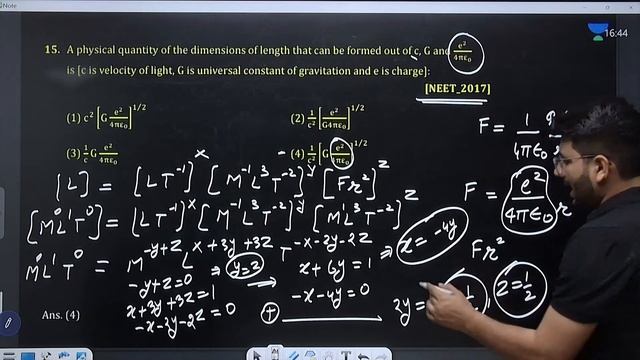 16:44
15. A physical quantity of the dimensions of length that can be formed out of c, G and e²/4πε₀
is [c is velocity of light, G is universal constant of gravitation and e is charge]:
[NEET_2017]
(1) c² [G e²/4πε₀]^1/2
(2) 1/c² [e²/G4πε₀]^1/2
(3) 1/c G e²/4πε₀
(4) 1/c² [G e²/4πε₀]^1/2
F = 1/4πε₀
[L] = [LT⁻¹]^x [M⁻¹L³T⁻²]^y [Fr²]^z
F = e²/4πε₀ r
[M⁰L¹T⁰] = [LT⁻¹]^x [M⁻¹L³T⁻²]^y [M¹L³T⁻²]^z
Fr²
M⁰L¹T⁰ = M^-y+z L^x+3y+3z T^-x-2y-2z ⇒ x = -4y
-y+z=0 ⇒ y=z
x+3y+3z=1
-x-2y-2z=0
x+6y=1
-x-4y=0
2y=
z=1/2
Ans. (4)